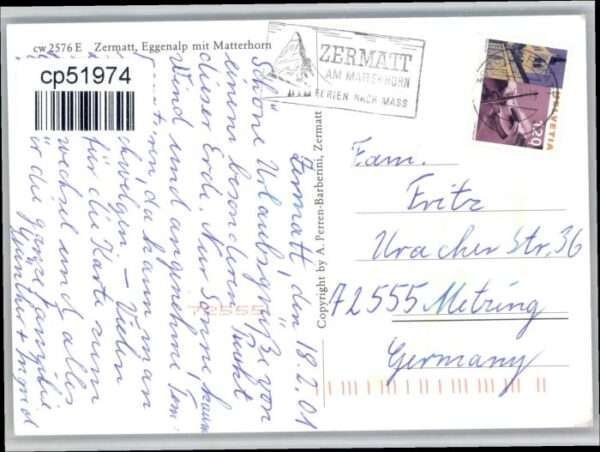 cw 2576 E Zermatt, Eggenalp mit Matterhorn
cp51974
ZERMATT
AM MATTERHORN
FERIEN NACH MASS
HELVETIA
120
Copyright by A. Perren-Barberini, Zermatt
Zermatt, den 18.2.01
Schöne Urlaubsgrüße von
einem besonderen Punkt
dieser Erde. Nur Sonne, kaum
Wind und angenehme Tem-
da kann man
schwelgen. – Vielen
für die Karte zum
wechsel und alles
für die ganze Familie
Günther + Ingrid
Fam.
Fritz
Uracher Str. 36
72555 Metzing
Germany
72555